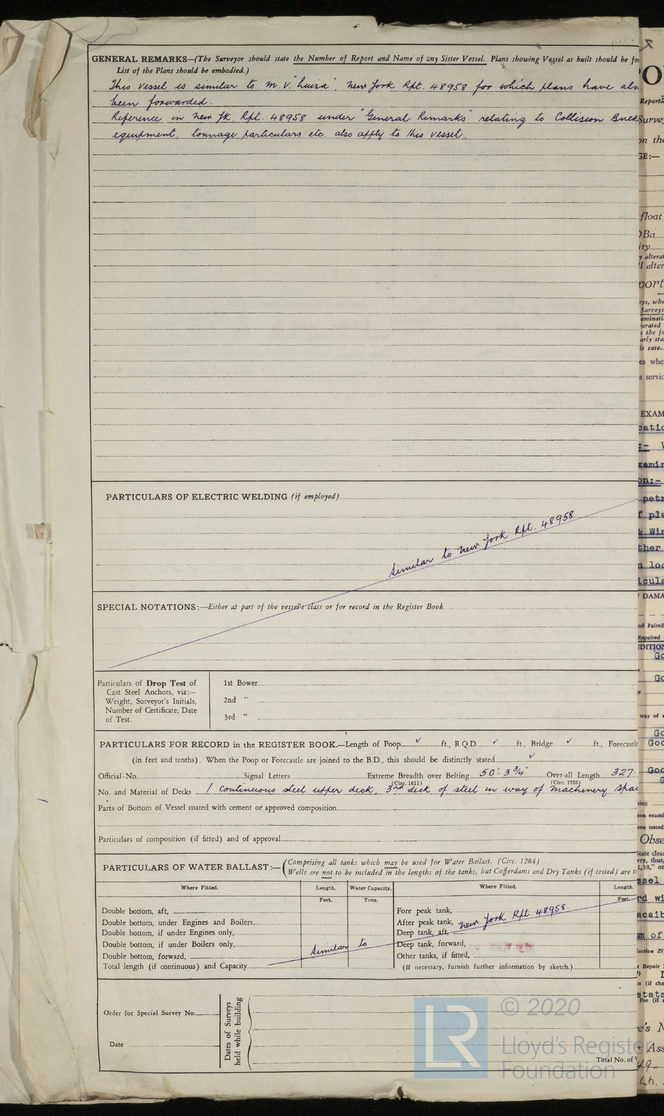 GENERAL REMARKS—(The Surveyor should state the Number of Report and Name of any Sister Vessel. Plans showing Vessel as built should be for
List of the Plans should be embodied.)
This vessel is similar to M.V. "Luisa" New York Rpt. 48958 for which plans have alr
been forwarded.
Reference in New Yk Rpt. 48958 under "General Remarks" relating to Collision Bhd
equipment, tonnage particulars etc. also apply to this vessel.
PARTICULARS OF ELECTRIC WELDING (if employed)
Similar to New York Rpt. 48958
SPECIAL NOTATIONS:—Either as part of the vessel's class or for record in the Register Book
Particulars of Drop Test of
Cast Steel Anchors, viz:—
Weight, Surveyor's Initials,
Number of Certificate, Date
of Test.
1st Bower
2nd "
3rd "
PARTICULARS FOR RECORD in the REGISTER BOOK.—Length of Poop ✓ ft., R.Q.D. ✓ ft., Bridge ✓ ft., Forecastle
(in feet and tenths). When the Poop or Forecastle are joined to the B.D., this should be distinctly stated ✓
Official No. Signal Letters Extreme Breadth over Belting 50'-3¾" Over-all Length 327
(Circ. 1611) (Circ. 1703)
No. and Material of Decks 1 continuous steel upper deck, 3rd deck of steel in way of machinery spa
Parts of Bottom of Vessel coated with cement or approved composition
Particulars of composition (if fitted) and of approval
PARTICULARS OF WATER BALLAST:— (Comprising all tanks which may be used for Water Ballast. (Circ. 1284)
Wells are not to be included in the lengths of the tanks, but Cofferdams and Dry Tanks (if tested) are to
Where Fitted. Length. Water Capacity. Where Fitted. Length.
Feet. Tons. Feet.
Double bottom, aft, Fore peak tank,
Double bottom, under Engines and Boilers, After peak tank,
Double bottom, if under Engines only, Deep tank, aft, New York Rpt 48958
Double bottom, if under Boilers only, Similar to Deep tank, forward,
Double bottom, forward, Other tanks, if fitted,
Total length (if continuous) and Capacity (If necessary, furnish further information by sketch.)
Order for Special Survey No.
Date
Dates of Surveys
held while building
Total No. of
LR
© 2020
Lloyd's Register
Foundation